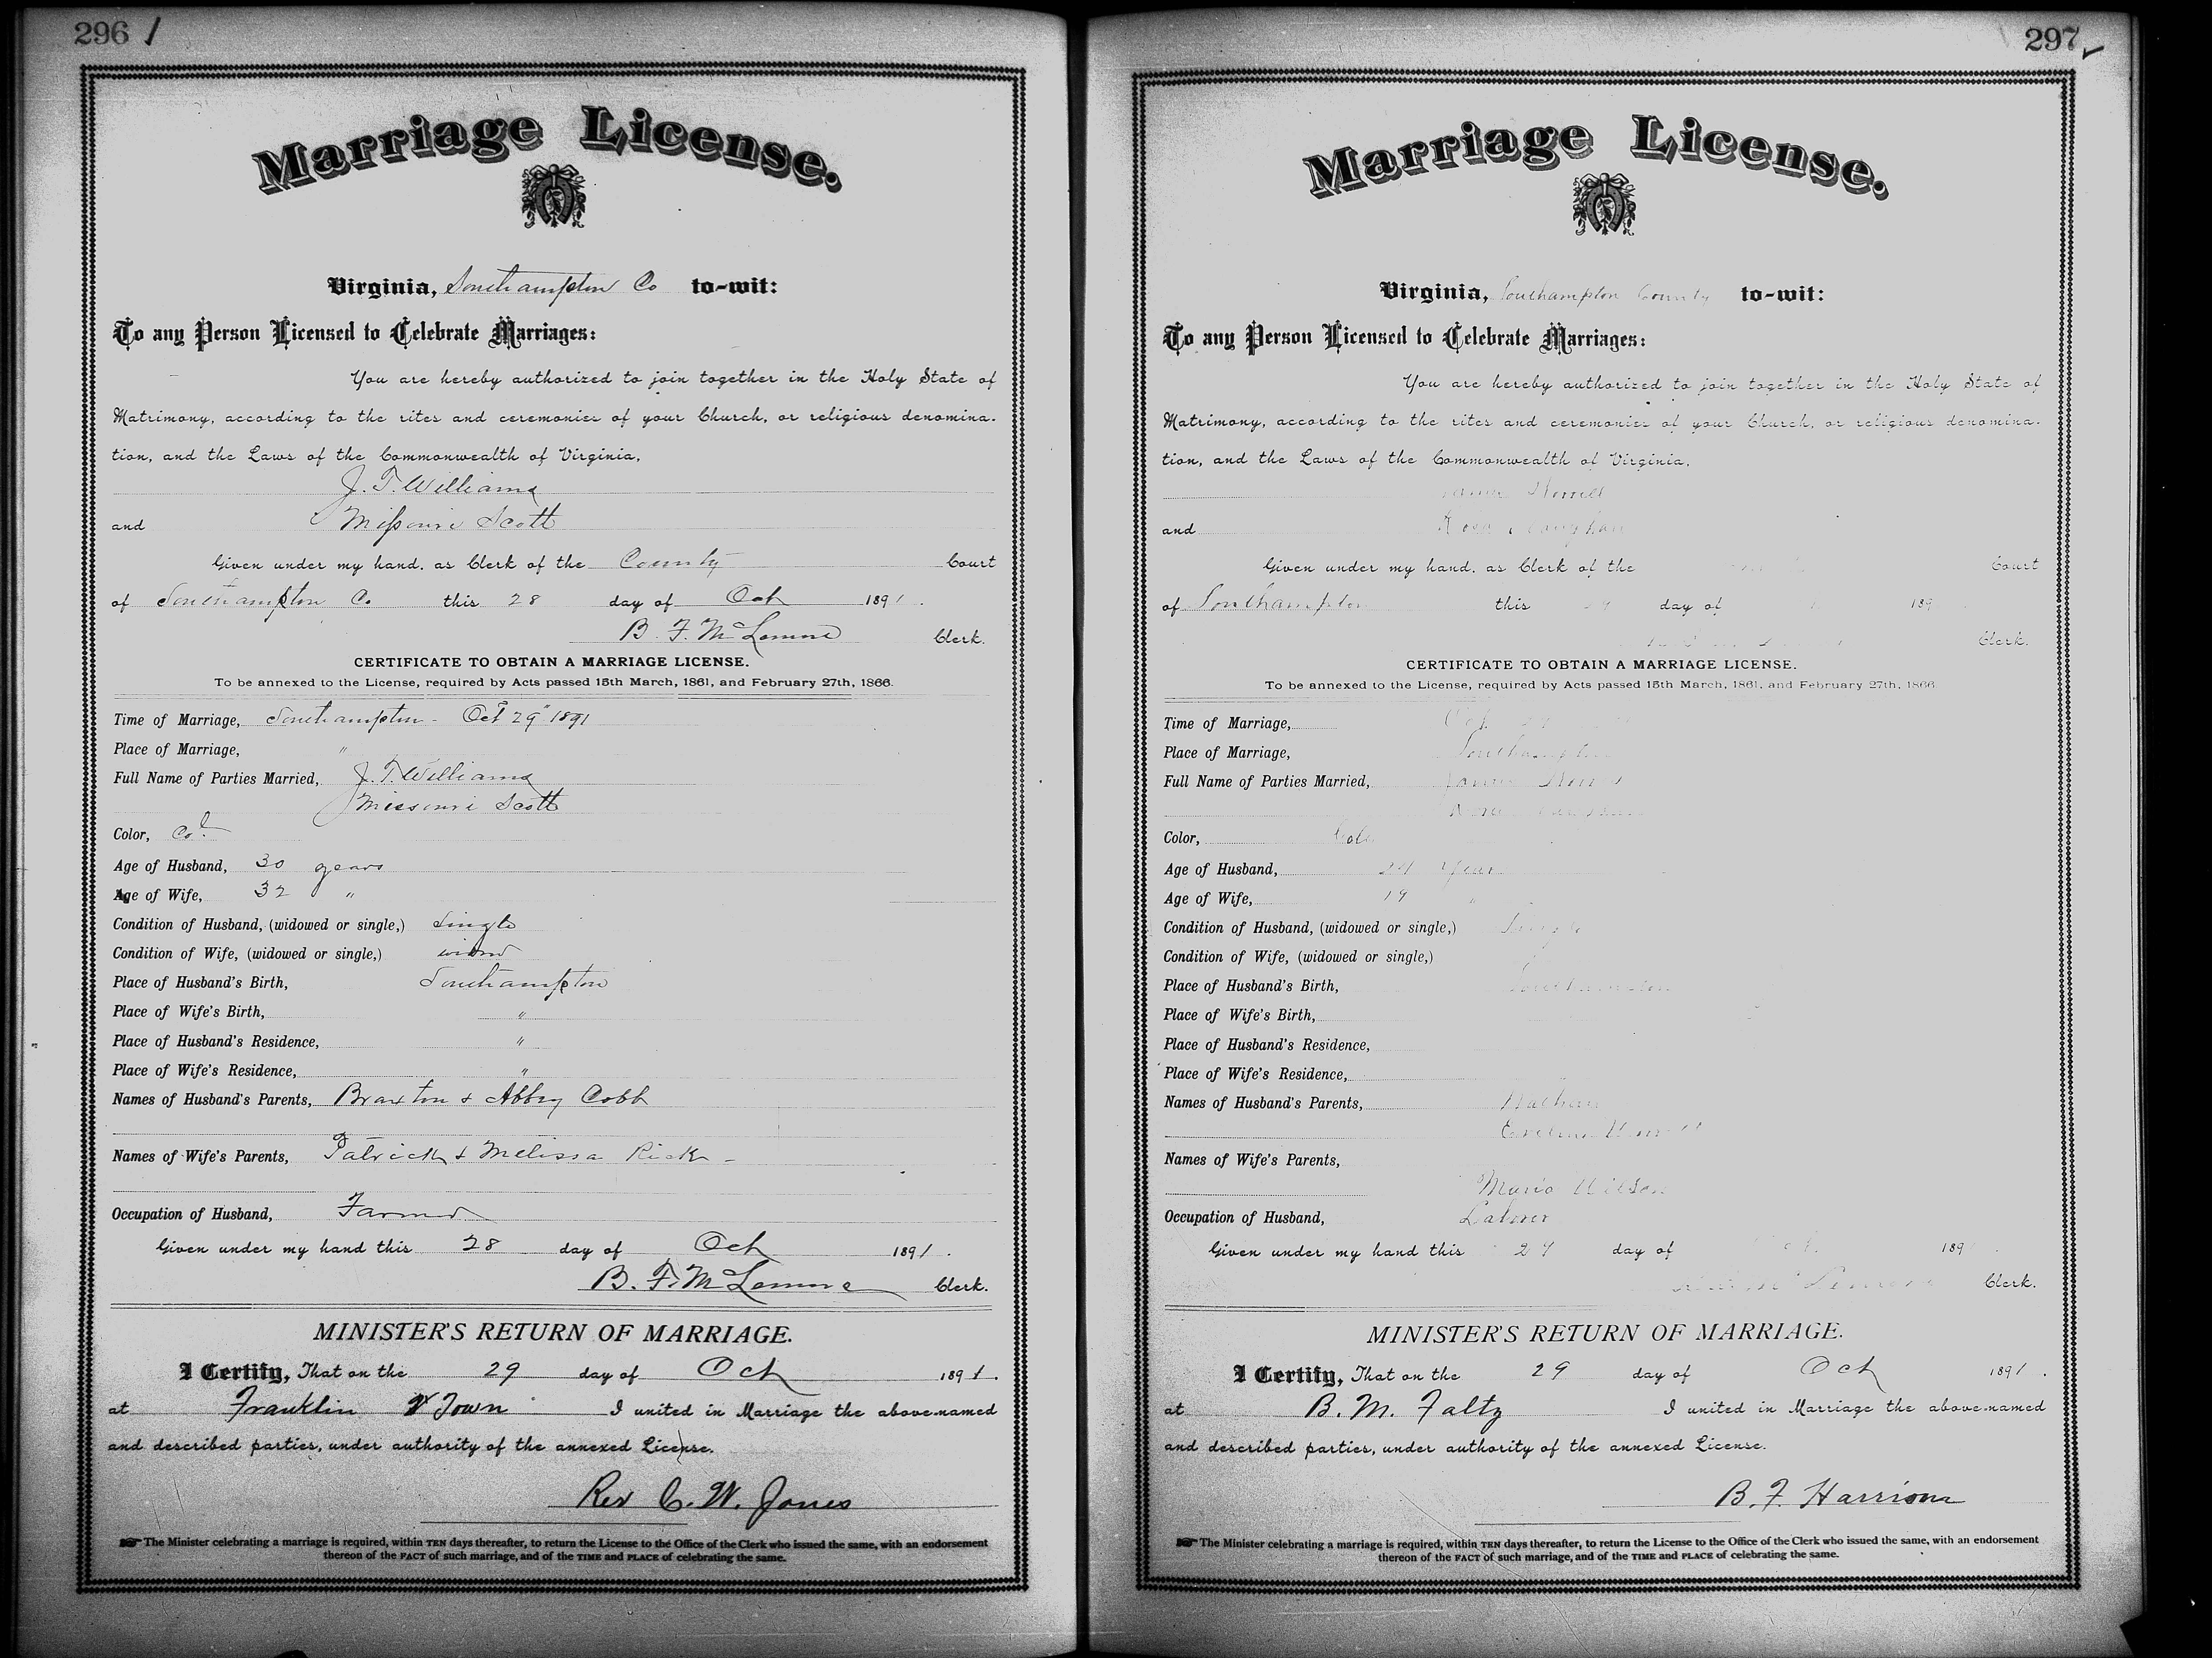 296
Marriage License.
Virginia, Southampton Co to-wit:
To any Person Licensed to Celebrate Marriages:
You are hereby authorized to join together in the Holy State of
Matrimony, according to the rites and ceremonies of your Church, or religious denomina-
tion, and the Laws of the Commonwealth of Virginia,
J. T. Williams
and Missouri Scott
Given under my hand, as Clerk of the County Court
of Southampton Co this 28 day of Oct 1891.
B. F. McLemore Clerk.
CERTIFICATE TO OBTAIN A MARRIAGE LICENSE.
To be annexed to the License, required by Acts passed 15th March, 1861, and February 27th, 1866.
Time of Marriage, Southampton - Oct 29" 1891
Place of Marriage, "
Full Name of Parties Married, J. T. Williams
Missouri Scott
Color, Col.
Age of Husband, 30 years
Age of Wife, 32 "
Condition of Husband, (widowed or single,) Single
Condition of Wife, (widowed or single,) widow
Place of Husband's Birth, Southampton
Place of Wife's Birth, "
Place of Husband's Residence, "
Place of Wife's Residence, "
Names of Husband's Parents, Braxton & Abbey Cobb
Names of Wife's Parents, Patrick & Melissa Ricks -
Occupation of Husband, Farmer
Given under my hand this 28 day of Oct 1891.
B. F. McLemore Clerk.
MINISTER'S RETURN OF MARRIAGE.
I Certify, That on the 29 day of Oct 1891.
at Franklin Town I united in Marriage the above-named
and described parties, under authority of the annexed License.
Rev C. W. Jones
The Minister celebrating a marriage is required, within TEN days thereafter, to return the License to the Office of the Clerk who issued the same, with an endorsement
thereon of the FACT of such marriage, and of the TIME and PLACE of celebrating the same.
297
Marriage License.
Virginia, Southampton County to-wit:
To any Person Licensed to Celebrate Marriages:
You are hereby authorized to join together in the Holy State of
Matrimony, according to the rites and ceremonies of your Church, or religious denomina-
tion, and the Laws of the Commonwealth of Virginia,
and
Given under my hand, as Clerk of the Court
of Southampton this day of 189
Clerk.
CERTIFICATE TO OBTAIN A MARRIAGE LICENSE.
To be annexed to the License, required by Acts passed 15th March, 1861, and February 27th, 1866.
Time of Marriage, Oct
Place of Marriage, Southampton
Full Name of Parties Married,
Color, Col
Age of Husband, Years
Age of Wife, 19 "
Condition of Husband, (widowed or single,) Single
Condition of Wife, (widowed or single,)
Place of Husband's Birth, Southampton
Place of Wife's Birth,
Place of Husband's Residence,
Place of Wife's Residence,
Names of Husband's Parents, Nathan
Names of Wife's Parents,
Maria Wilson
Occupation of Husband, Laborer
Given under my hand this day of 189
Clerk.
MINISTER'S RETURN OF MARRIAGE.
I Certify, That on the 29 day of Oct 1891.
at B. M. Faltz I united in Marriage the above-named
and described parties, under authority of the annexed License.
B. F. Harrison
The Minister celebrating a marriage is required, within TEN days thereafter, to return the License to the Office of the Clerk who issued the same, with an endorsement
thereon of the FACT of such marriage, and of the TIME and PLACE of celebrating the same.